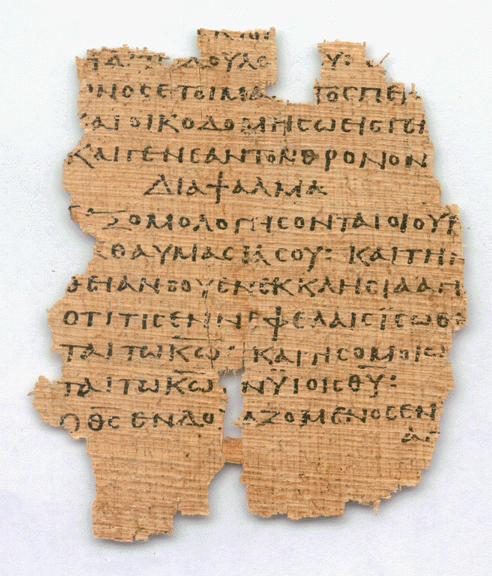 ΔΟΥΛΩ Υ:
ΝΟΣΕΤΟΙΜΑ ΤΟΣΠΕΡ
ΚΑΙΟΙΚΟΔΟΜΗΣΩΕΙΣΓΕΝ
ΚΑΙΓΕΝΕΑΝΤΟΝΘΡΟΝΟΝ
ΔΙΑΨΑΛΜΑ
ΞΟΜΟΛΟΓΗΣΟΝΤΑΙΟΙΟΥΡ
ΘΑΥΜΑΣΙΑΣΟΥ: ΚΑΙΤΗΝ
ΘΕΙΑΝΣΟΥΕΝΕΚΚΛΗΣΙΑΑΓΙ
ΟΤΙΤΙΣΕΝΝΕΦΕΛΑΙΣΙΣΩΘ
ΤΑΙΤΩΚ̅Ω̅: ΚΑΙΤΙΣΟΜΟΙΩ
ΤΑΙΤΩΚ̅Ω̅ ΝΫΙΟΙΣΘ̅Υ̅:
ΟΘ̅Σ̅ΕΝΔΟ ΑΖΟΜΕΝΟΣΕΝ